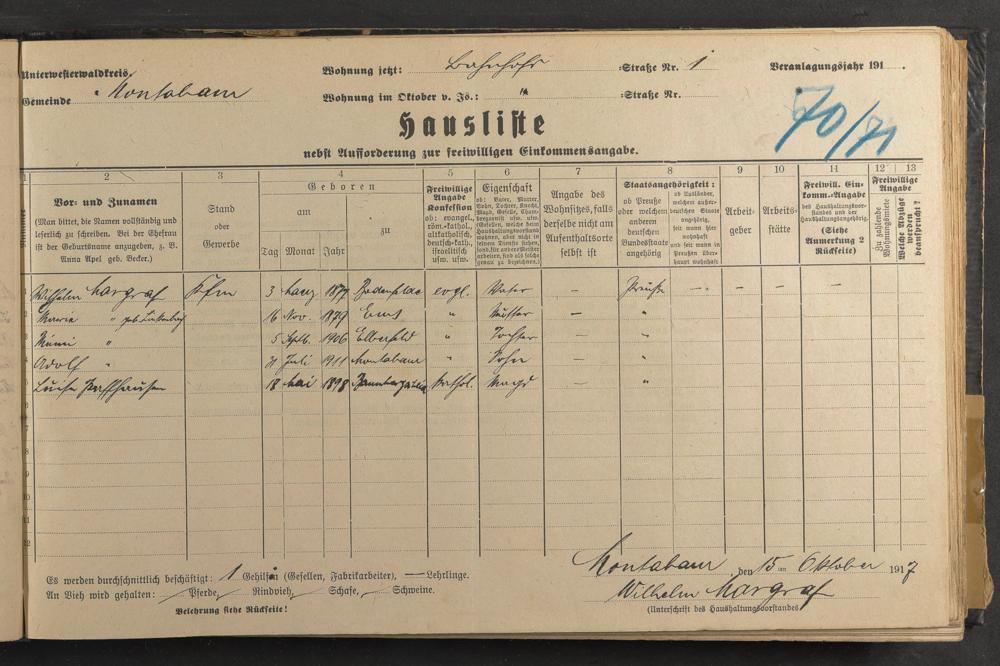 Unterwesterwaldkreis
Wohnung jetzt: Bahnhofs :Straße Nr. 1
Veranlagungsjahr 191
Gemeinde Montabaur
Wohnung im Oktober v. Js.: " :Straße Nr.
Hausliste
nebst Aufforderung zur freiwilligen Einkommensangabe.
70/71
1 2 3 4 5 6 7 8 9 10 11 12 13
Vor- und Zunamen
(Man bittet, die Namen vollständig und
leserlich zu schreiben. Bei der Ehefrau
ist der Geburtsname anzugeben, z. B.
Anna Apel geb. Becker.)
Stand
oder
Gewerbe
Geboren
am
zu
Tag Monat Jahr
Freiwillige
Angabe
Konfession
ob: evangel.,
röm.-kathol.,
altkatholisch,
deutsch-kath.,
israelitisch
usw. usw.
Eigenschaft
Angabe des
Wohnsitzes, falls
derselbe nicht am
Aufenthaltsorte
selbst ist
Staatsangehörigkeit:
ob Preuße
oder welchem
anderen
deutschen
Bundesstaate
angehörig
ob Ausländer,
welchem außer-
deutschen Staate
angehörig,
seit wann hier
wohnhaft
und seit wann in
Preußen über-
haupt wohnhaft
Arbeit-
geber
Arbeits-
stätte
Freiwill. Ein-
komm.-Angabe
des Haushaltungsvor-
standes und der
Haushaltungsangehörig.
(Siehe
Anmerkung 2
Rückseite)
Freiwillige
Angabe
Zu zahlende
Wohnungsmiete
Welche Abzüge
werden
beansprucht?
Wilhelm Margraf Kfm 3 1877 evgl. Vater – Preuße – – – –
Maria " geb. 16 Nov. 1879 Ems " Mutter – "
" 5 Sptb. 1906 Elberfeld " Tochter – "
Adolf " 21 Juli 1911 Montabaur " Sohn – "
Luise 18 Mai 1898 kathol. Magd – "
Es werden durchschnittlich beschäftigt: 1 Gehilfin (Gesellen, Fabrikarbeiter), — Lehrlinge.
An Vieh wird gehalten: Pferde, Rindvieh, Schafe, Schweine.
Belehrung siehe Rückseite!
Montabaur, den 15 ten Oktober 1917
Wilhelm Margraf
(Unterschrift des Haushaltungsvorstandes